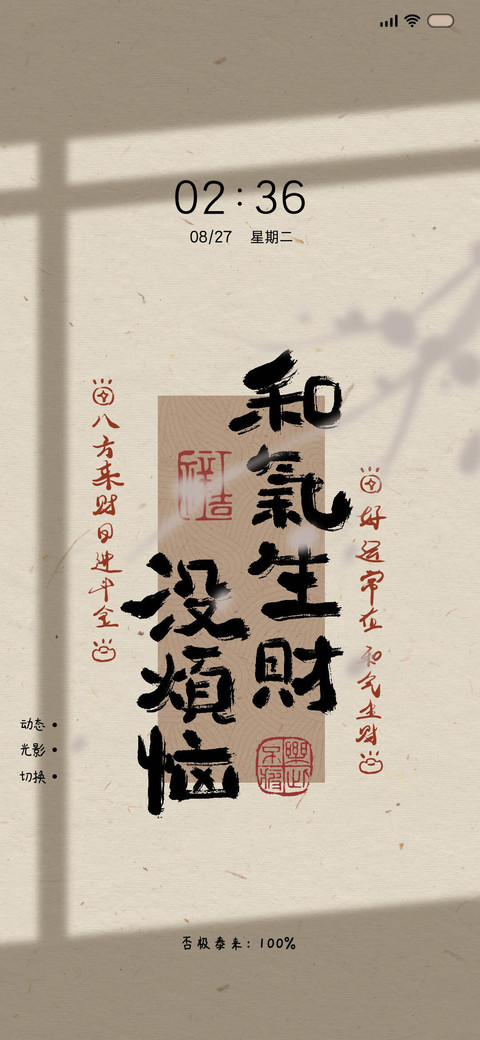 02:36
08/27 星期二
和氣生財
没煩恼
好运常在 和气生财
八方来财日进斗金
动态
光影
切换
否极泰来：100%